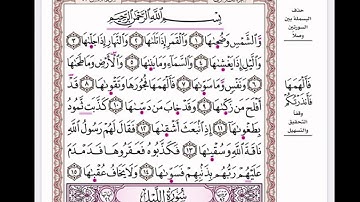 بِسْمِ اللَّهِ الرَّحْمَٰنِ الرَّحِيمِ
وَالشَّمْسِ وَضُحَىٰهَا ١ وَالْقَمَرِ إِذَا تَلَىٰهَا ٢ وَالنَّهَارِ إِذَا جَلَّىٰهَا ٣
وَاللَّيْلِ إِذَا يَغْشَىٰهَا ٤ وَالسَّمَاءِ وَمَا بَنَىٰهَا ٥ وَالْأَرْضِ وَمَا طَحَىٰهَا
٦ وَنَفْسٍ وَمَا سَوَّىٰهَا ٧ فَأَلْهَمَهَا فُجُورَهَا وَتَقْوَىٰهَا ٨ قَدْ
أَفْلَحَ مَن زَكَّىٰهَا ٩ وَقَدْ خَابَ مَن دَسَّىٰهَا ١٠ كَذَّبَتْ ثَمُودُ
بِطَغْوَىٰهَا ١١ إِذِ انبَعَثَ أَشْقَىٰهَا ١٢ فَقَالَ لَهُمْ رَسُولُ اللَّهِ
نَاقَةَ اللَّهِ وَسُقْيَىٰهَا ١٣ فَكَذَّبُوهُ فَعَقَرُوهَا فَدَمْدَمَ
عَلَيْهِمْ رَبُّهُم بِذَنبِهِمْ فَسَوَّىٰهَا ١٤ وَلَا يَخَافُ عُقْبَىٰهَا ١٥
سُورَةُ اللَّيْلِ
حذف
البسملة بين
السورتين
وصلا
فَأَلْهَمَهَا
فَأَنذَرْتُكُمْ
وقفا
التحقيق
والتسهيل